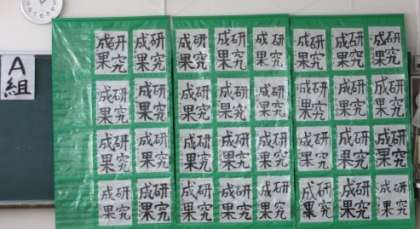 A組
研究
成果
研究
成果
研究
成果
研究
成果
研究
成果
研究
成果
研究
成果
研究
成果
研究
成果
研究
成果
研究
成果
研究
成果
研究
成果
研究
成果
研究
成果
研究
成果
研究
成果
研究
成果
研究
成果
研究
成果
研究
成果
研究
成果
研究
成果
研究
成果
研究
成果
研究
成果
研究
成果
研究
成果
研究
成果
研究
成果
研究
成果
研究
成果